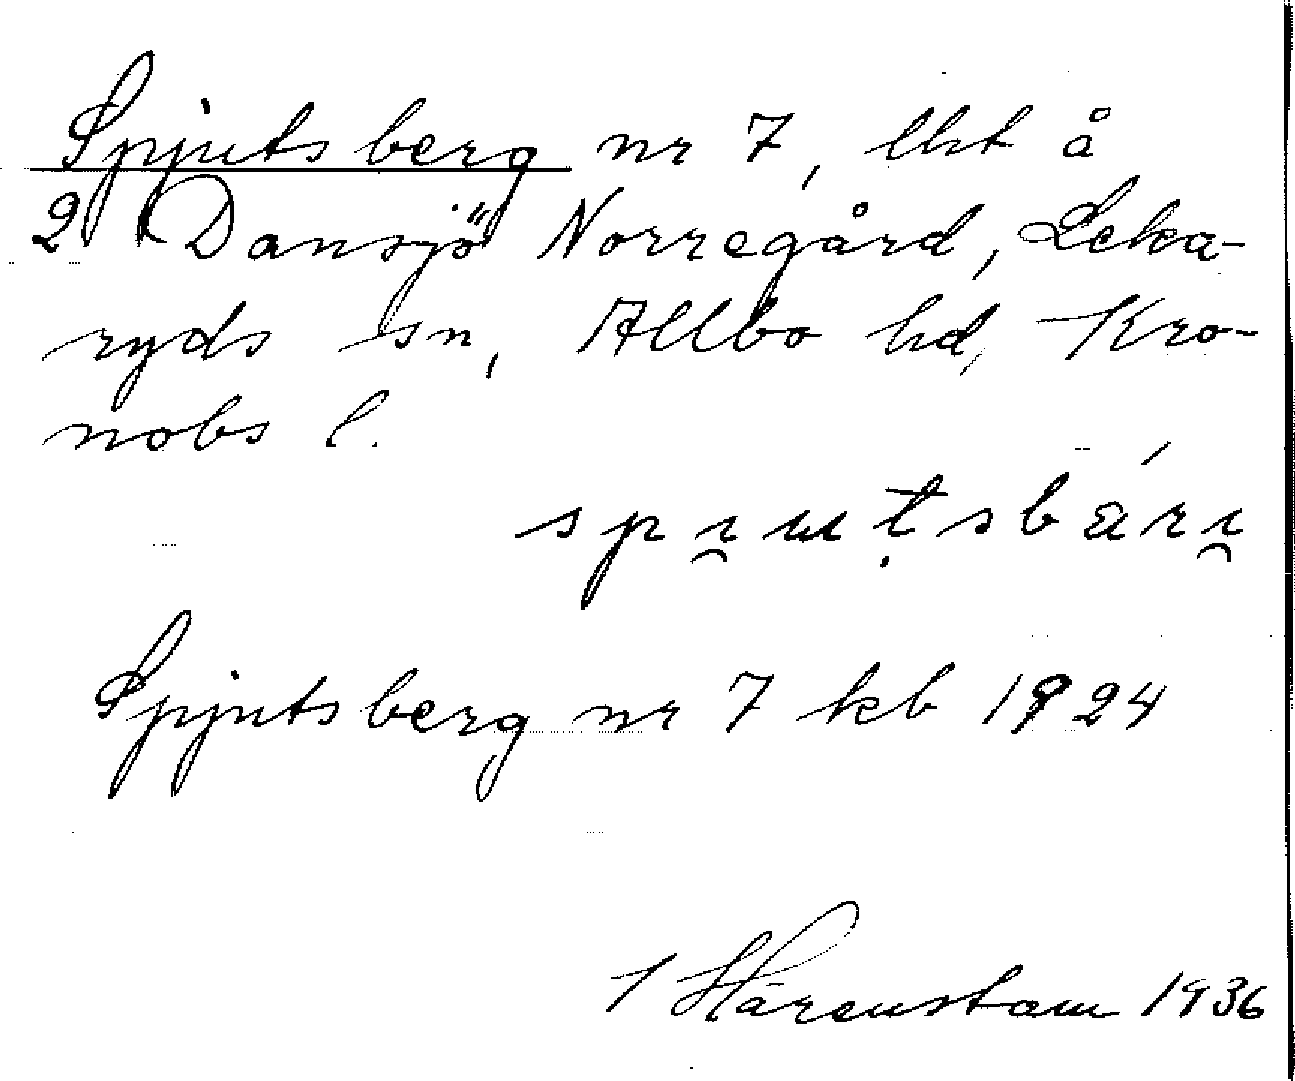 Spjutsberg nr 7, lht å
2 Dansjö Norregård, Leka-
ryds sn, Allbo hd, Kro-
nobs l.
spi̯ut̩sbäri̯
Spjutsberg nr 7 kb 1924
Härenstam 1936